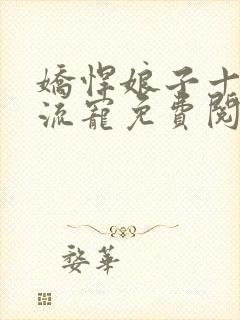 嬌悍娘子十
流寵免費閱
婺華